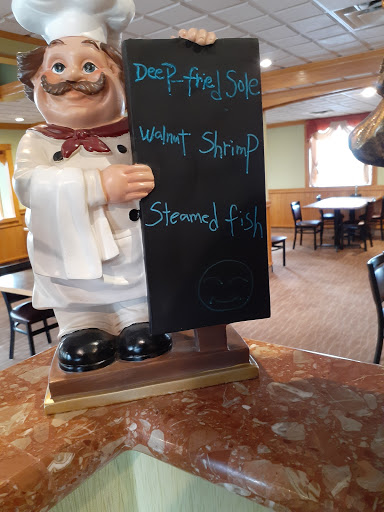 Deep-fried Sole
Walnut Shrimp
Steamed fish